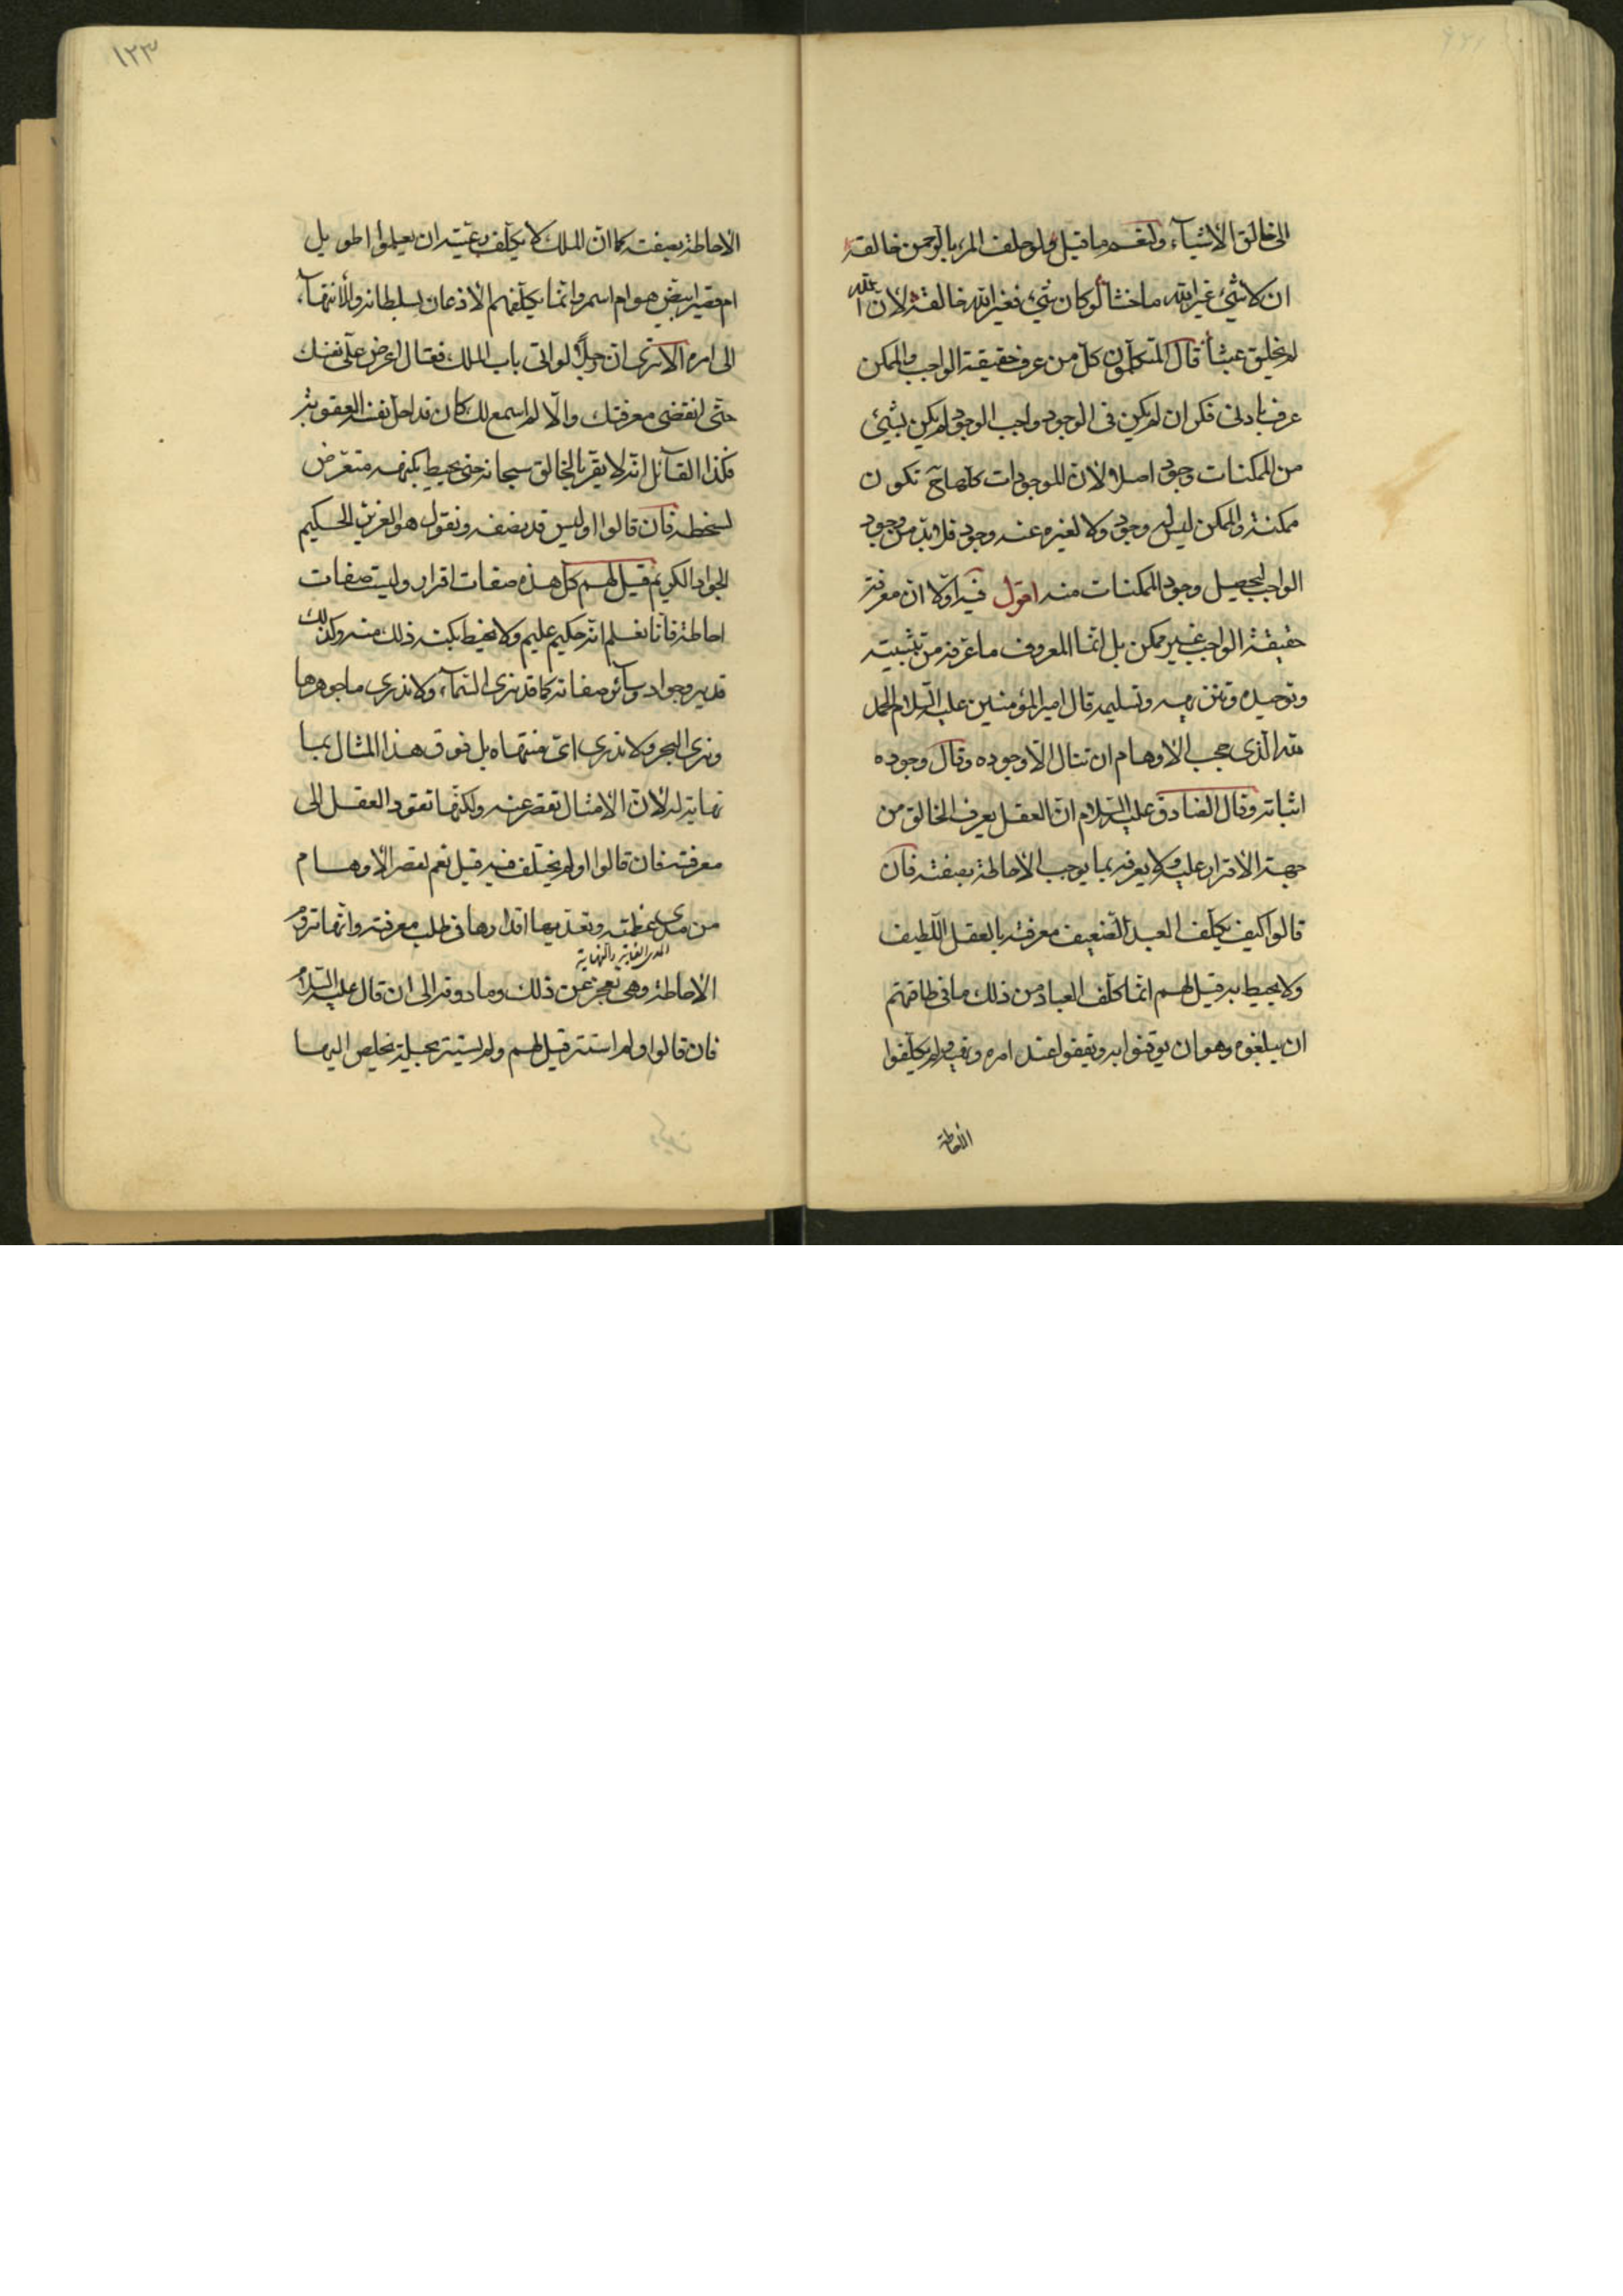 الى خالق الأشيآء ولنعم ما قيل ولو حلف المرء بالرحمن خالقه
ان لا شئ غير الله ما حنثا لو كان شئ فغير الله خالقه لأن الله
لم يخلق عبثا قال المتكلمون كل من عرف حقيقة الواجب والممكن
عرف بادنى فكر ان لم يكن فى الوجود واجب الوجود لم يكن بشئ
من الممكنات وجود اصلا لأن الموجودات كلها ح تكون
ممكنة والممكن ليس له وجود ولا لغيره عنه وجود فلا بد من وجود
الواجب ليحصل وجود الممكنات منه اقول فيه اولا ان معرفة
حقيقة الواجب غير ممكن بل انما المعروف ما عرفه من تثبيته
وتوحيده وتنزيهه وتسليمه قال امير المؤمنين عليه السلام الحمد
لله الذى حجب الأوهام ان تنال الا وجوده وقال وجوده
اثباته وقال الصادق عليه السلام ان العقل يعرف الخالق من
جهة الأقرار عليه ولا يعرفه بما يوجب الأحاطة بصفته فان
قالوا كيف يكلف العبد الضعيف معرفته بالعقل اللطيف
ولا يحيط به قيل لهم انما كلف العباد من ذلك ما فى طاقتهم
ان يبلغوه وهو ان يوقنوا به ويقفوا عند امره ونهيه ولم يكلفوا
الأحاطة
١٢٣
الأحاطة بصفته كما ان الملك لا يكلف رعيته ان يعلموا اطويل
ام قصير ابيض هو ام اسمر وانما يكلفهم الأذعان لسلطانه والأنتهآء
الى امره الا ترى ان رجلا لو اتى باب الملك فقال اعرض على نفسك
حتى اتقضى معرفتك والا لم اسمع لك كان قد احل نفسه العقوبة
فكذا القآئل انه لا يقر بالخالق سبحانه حتى يحيط بكنهه متعرض
لسخطه فان قالوا اوليس قد نصفه ونقول هو العزيز الحكيم
الجواد الكريم قيل لهم كل هذه صفات اقرار وليست صفات
احاطة فانا نعلم انه حكيم عليم ولا نحيط بكنه ذلك منه وكذلك
قدير وجواد وسآئر صفاته كما قد نرى السمآء ولا ندرى ما جوهرها
ونرى البحر ولا ندرى اى منتهاه بل فوق هذا المثال بما لا
نهاية له لأن الأمثال تقصر عنه ولكنها تقود العقل الى
معرفته فان قالوا ولم يختلف فيه قيل نعم لقصر الأوهام
من مدى عظمته وتعديها اقدارها فى طلب معرفته وانها تروم
المدى الغاية والنهاية
الأحاطة وهى تعجز عن ذلك وما دونه الى ان قال عليه السلام
فان قالوا ولم استتر قيل لهم ولم يستتر بحيلة يخلص اليها